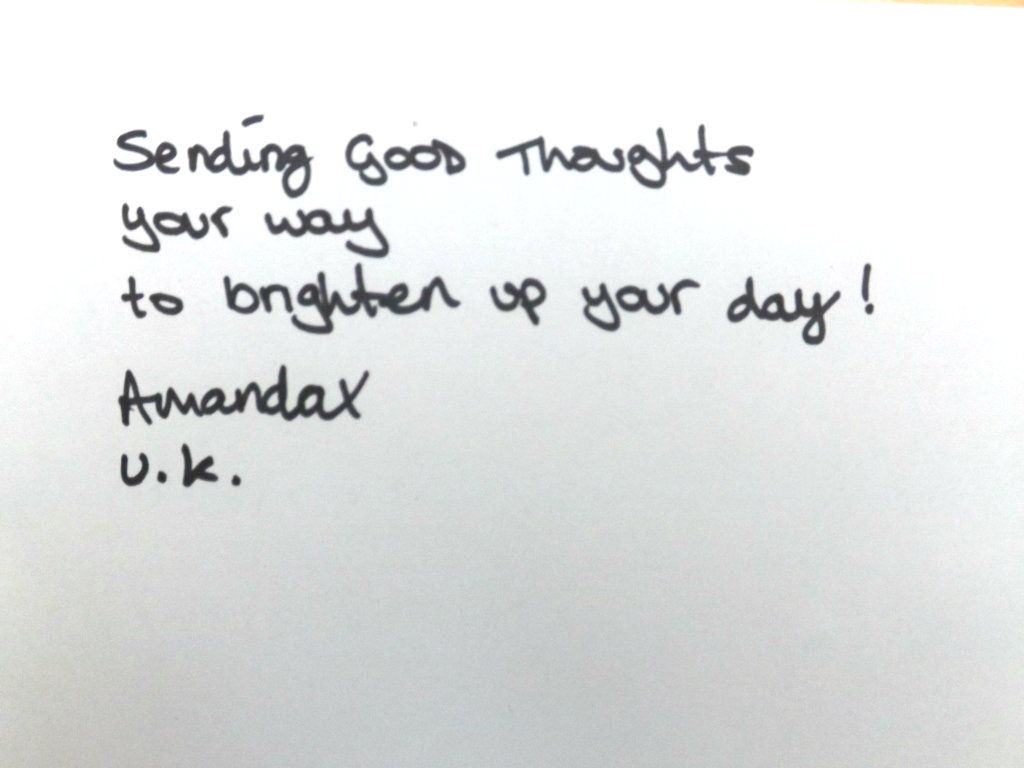 Sending Good Thoughts
your way
to brighten up your day!
Amanda X
U.K.